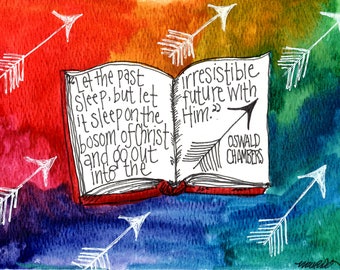 "Let the past
sleep, but let
it sleep on the
bosom of Christ
and go out
into the
irresistible
future with
Him."
OSWALD
CHAMBERS